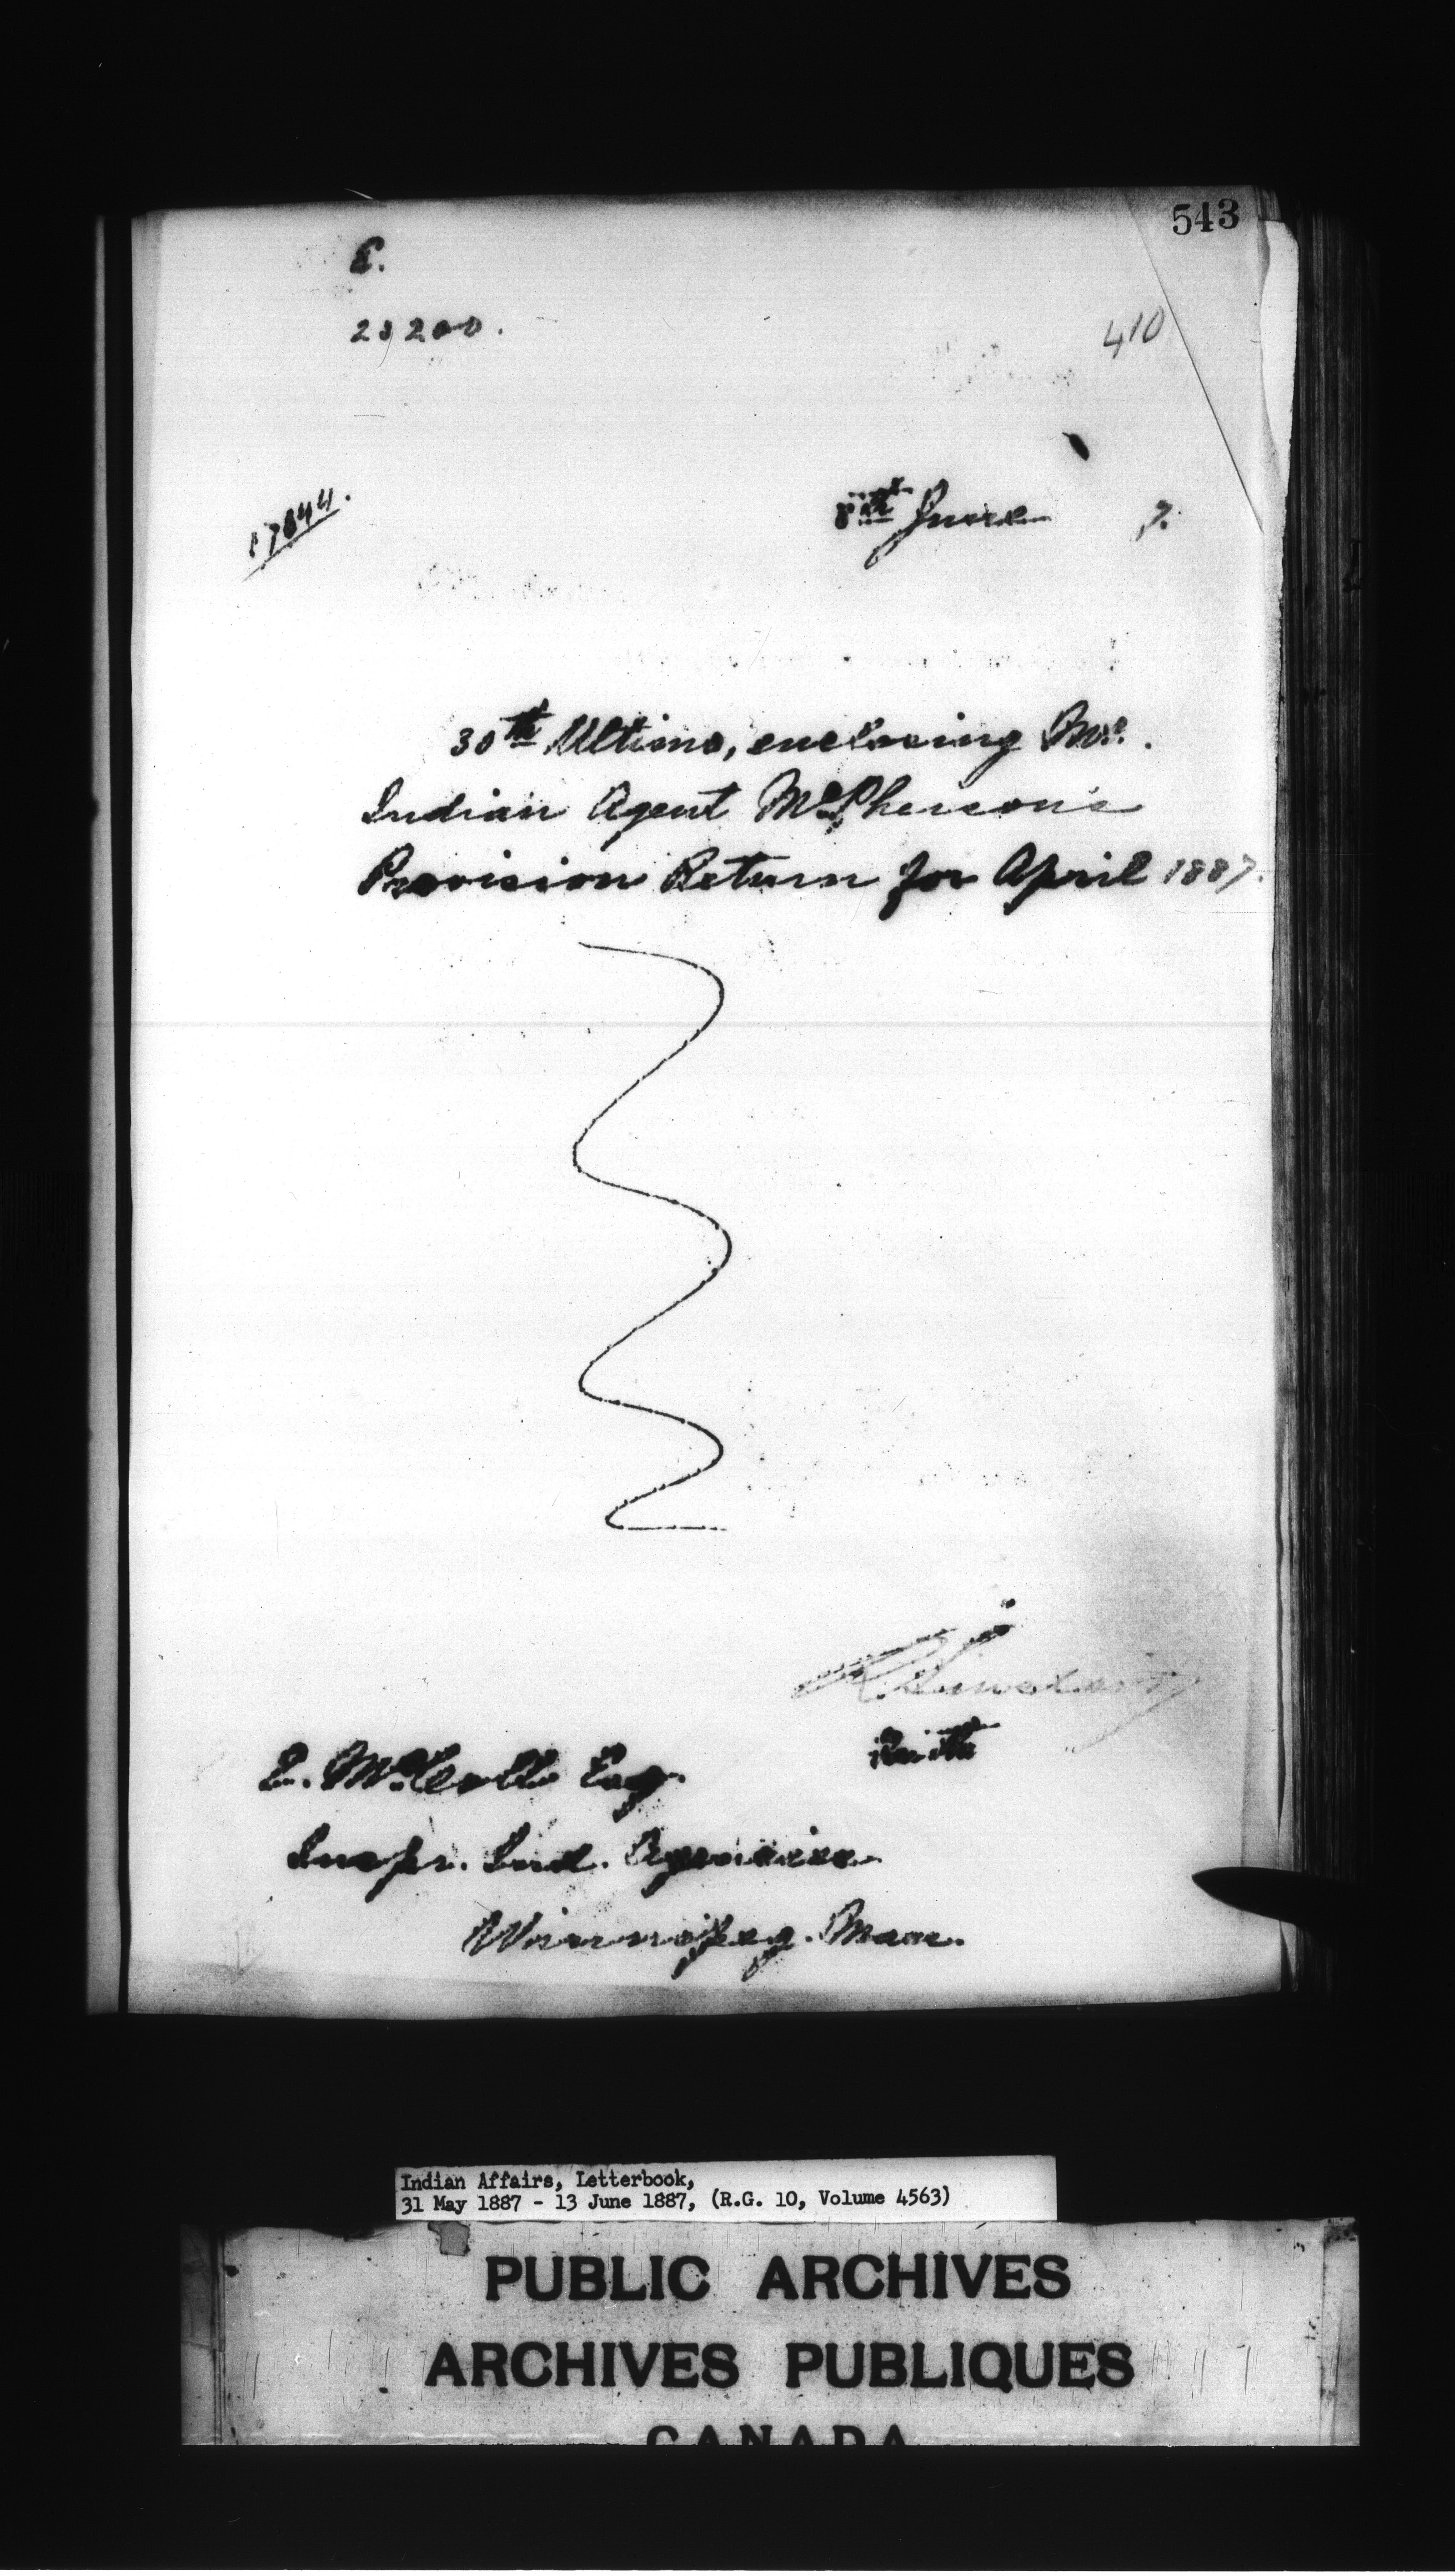 543
E.
410
17844.
8th June 7.
30th Ultimo, enclosing Mr.
Indian Agent McPherson's
Provision Return for April 1887.
E. McColl Esq.
Inspr. Ind. Agencies
Winnipeg. Man.
Indian Affairs, Letterbook,
31 May 1887 - 13 June 1887, (R.G. 10, Volume 4563)
PUBLIC ARCHIVES
ARCHIVES PUBLIQUES
CANADA